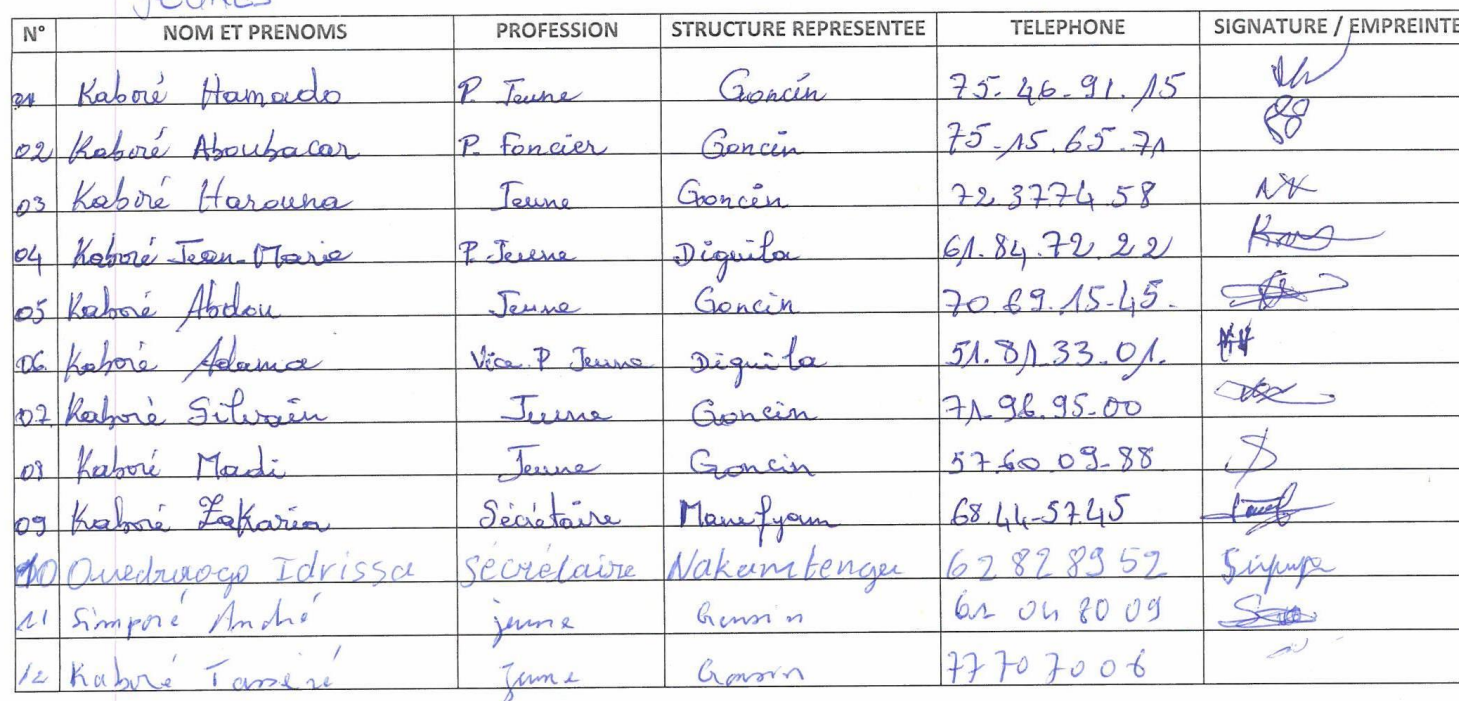 JEUNES
N° NOM ET PRENOMS PROFESSION STRUCTURE REPRESENTEE TELEPHONE SIGNATURE / EMPREINTE
01 Kaboré Hamado P. Jeune Goncin 75.46.91.15
02 Kaboré Aboubacar P. Foncier Goncin 75.15.65.71
03 Kaboré Harouna Jeune Goncin 72.3774.58
04 Kaboré Jean-Marie P. Jeune Diguila 61.84.72.22
05 Kaboré Abdou Jeune Goncin 70.69.15.45.
06 Kaboré Adama Vice P Jeune Diguila 51.81.33.01.
07 Kaboré Silvain Jeune Goncin 71.96.95.00
08 Kaboré Madi Jeune Goncin 57.60.09.88
09 Kaboré Zakaria Sécrétaire Manefyam 68.44-5745
10 Ouedraogo Idrissa Sécrétaire Nakamtenga 62828952
11 Simporé André jeune Gonsin 61 04 80 09
12 Kaboré Tasséré Jeune Gonsin 77707006